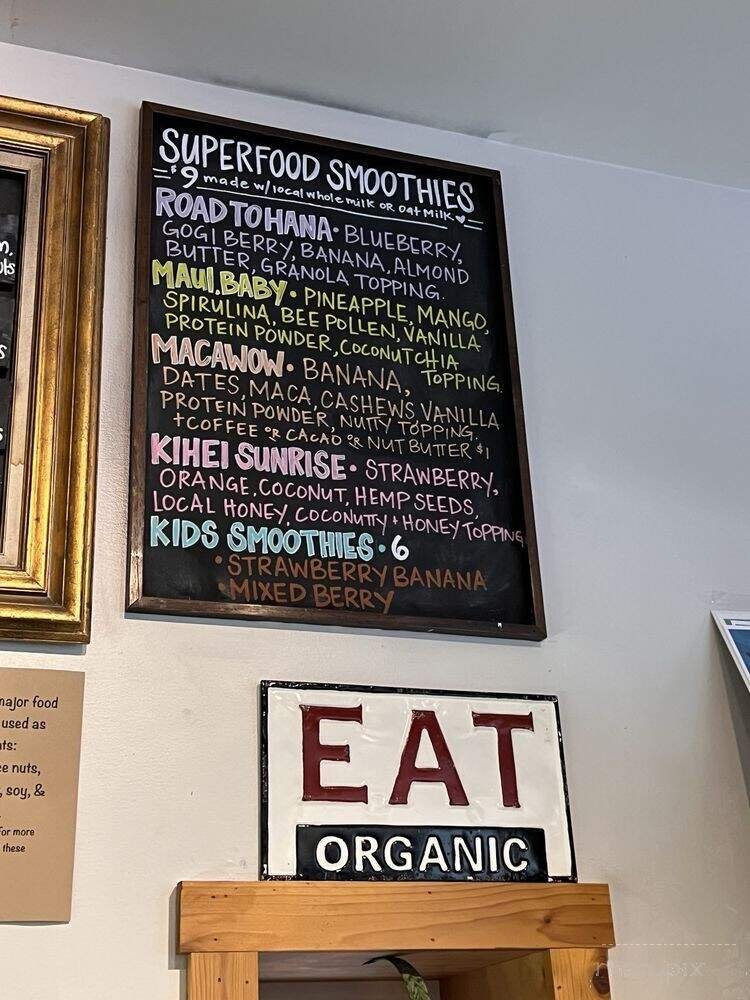 SUPERFOOD SMOOTHIES
$9 made w/local whole milk OR oat milk ♥
ROAD TO HANA • BLUEBERRY,
GOGI BERRY, BANANA, ALMOND
BUTTER, GRANOLA TOPPING.
MAUI.BABY • PINEAPPLE, MANGO,
SPIRULINA, BEE POLLEN, VANILLA
PROTEIN POWDER, COCONUT CHIA
TOPPING.
MACAWOW • BANANA,
DATES, MACA, CASHEWS VANILLA
PROTEIN POWDER, NUTTY TOPPING.
+COFFEE OR CACAO OR NUT BUTTER $1
KIHEI SUNRISE • STRAWBERRY,
ORANGE, COCONUT, HEMP SEEDS,
LOCAL HONEY, COCONUTTY + HONEY TOPPING
KIDS SMOOTHIES • 6
• STRAWBERRY BANANA
• MIXED BERRY
major food
used as
nuts,
, soy, &
for more
these
EAT
ORGANIC